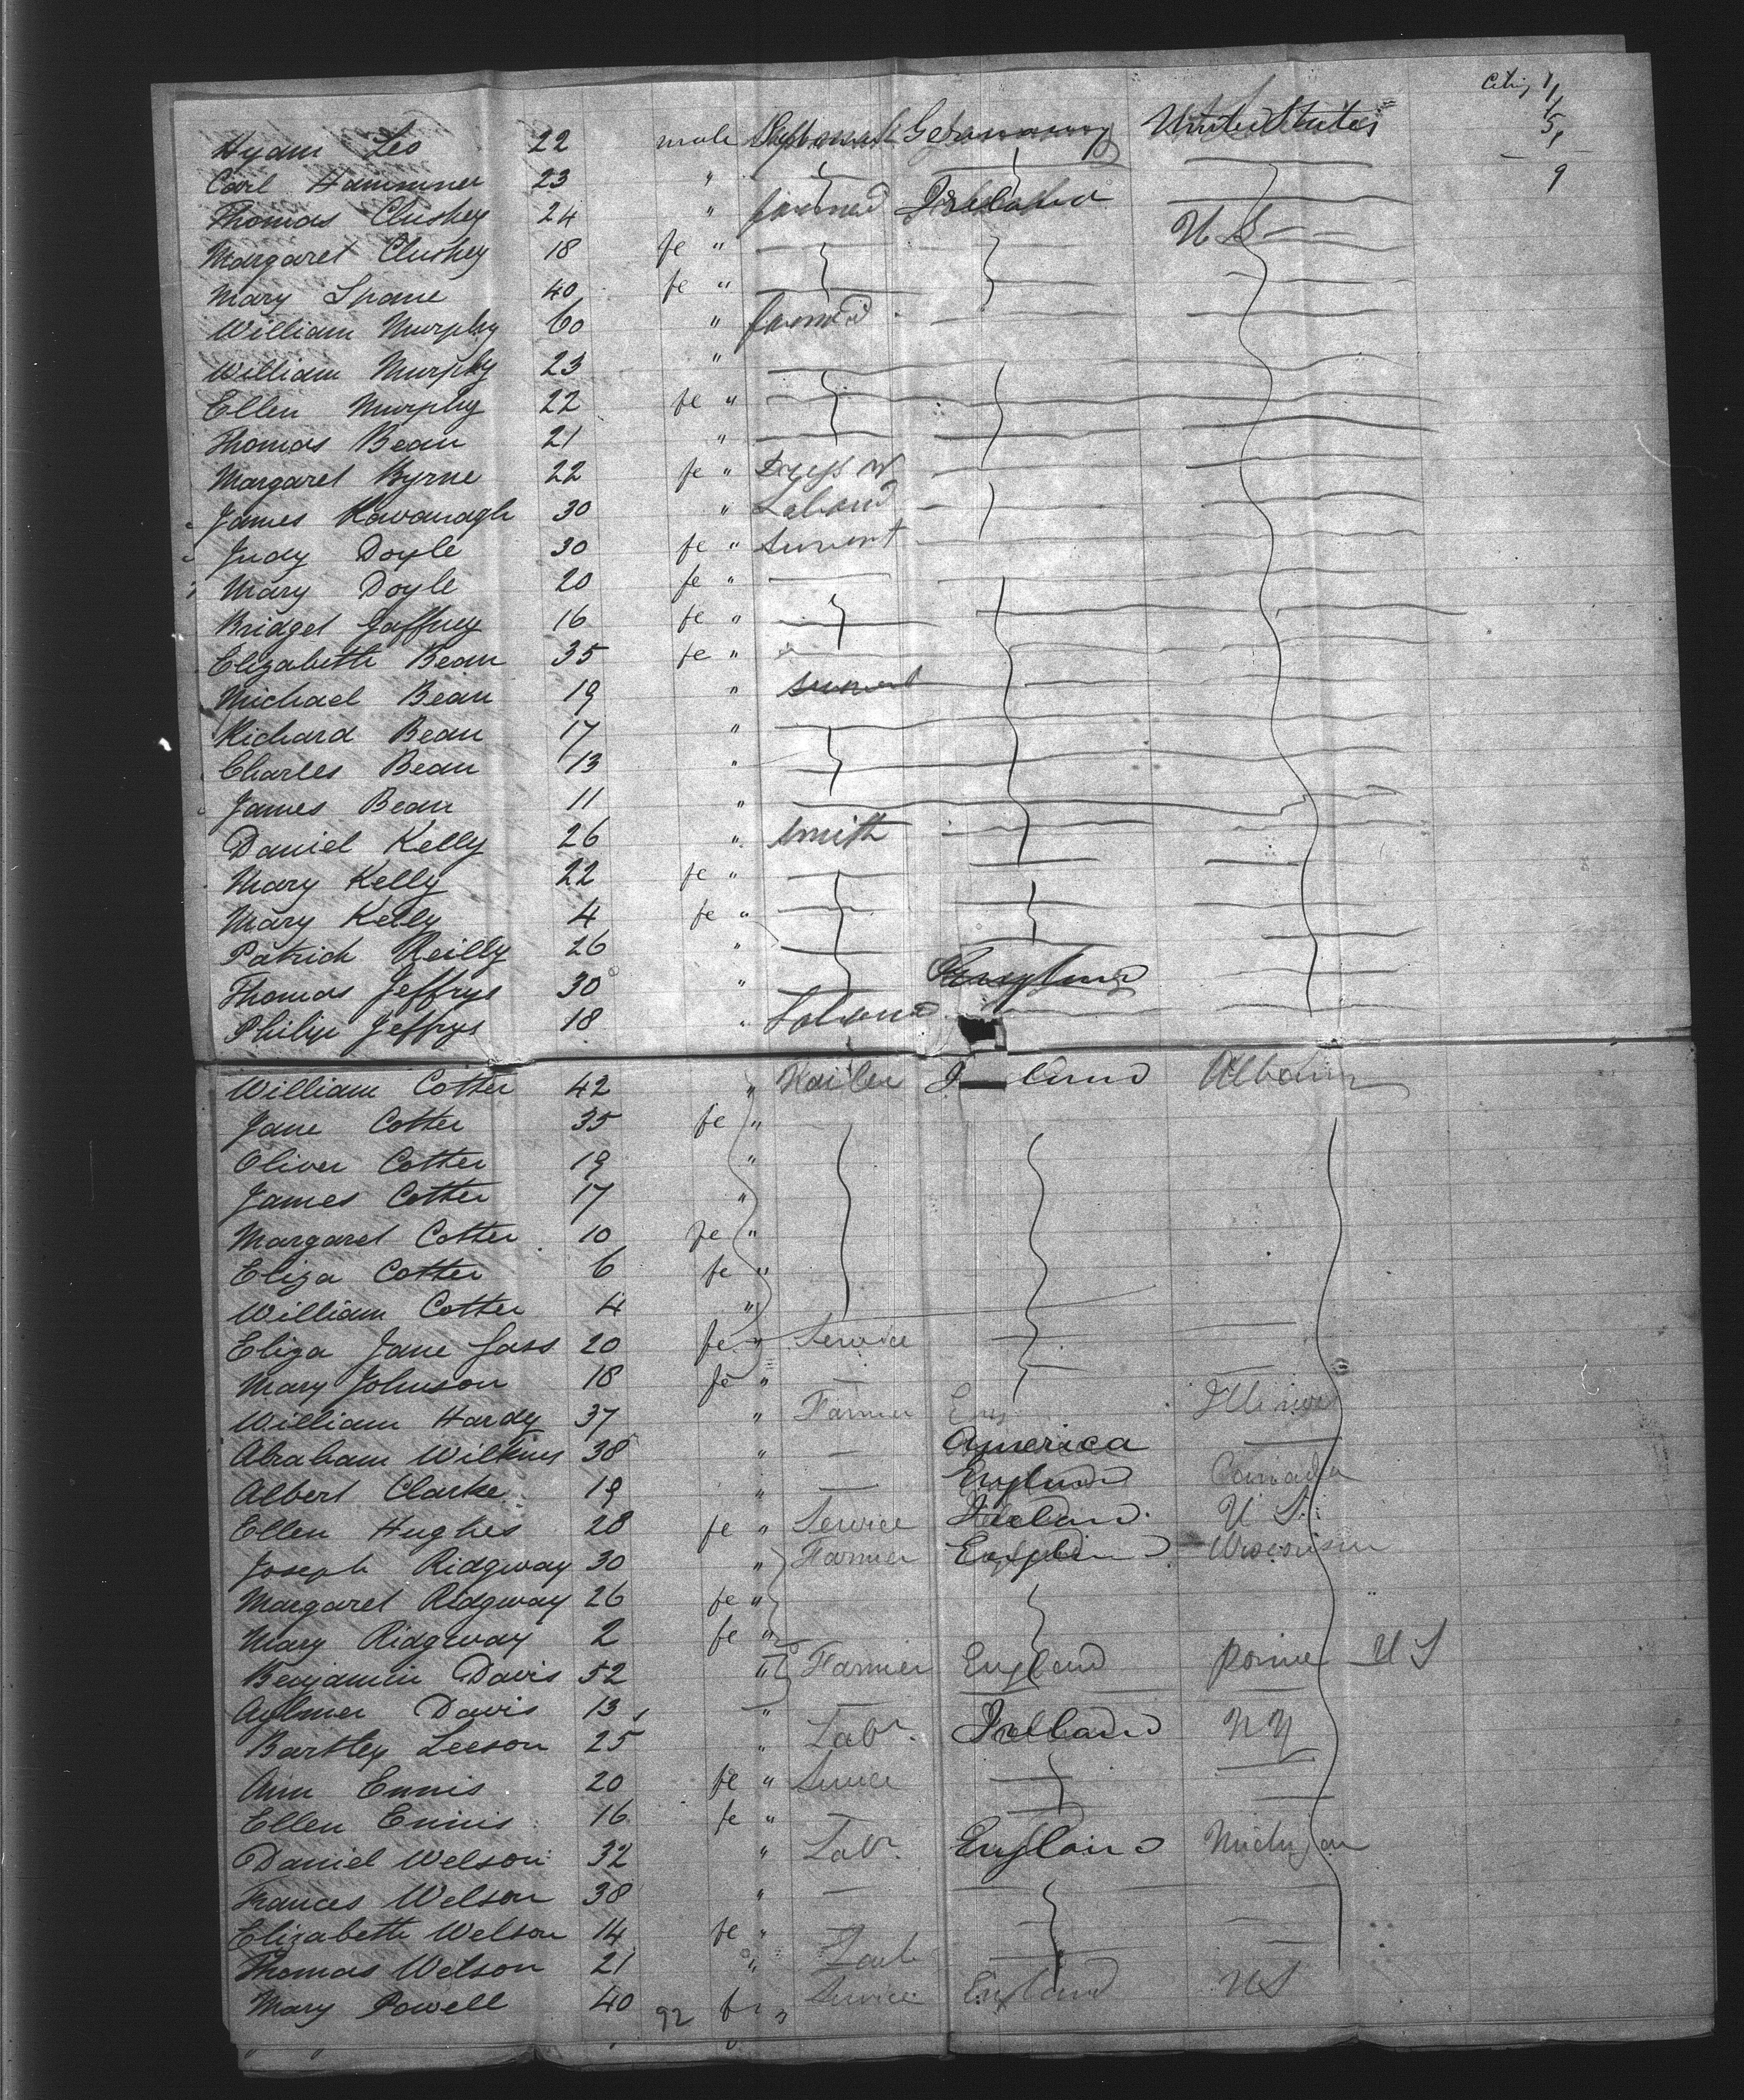 Citiz 1/
1/
5,
9
Hyam Leo 22 male United States
Carl Hammner 23 "
Thomas Cluskey 24 " Ireland
Margaret Cluskey 18 fe " U S
Mary Spane 40 fe "
William Murphy 60 "
William Murphy 23 "
Ellen Murphy 22 fe "
Thomas Bean 21 "
Margaret Byrne 22 fe "
James Kavanagh 30 "
Judy Doyle 30 fe " Servant
Mary Doyle 20 fe "
Bridget Gaffney 16 fe "
Elizabeth Bean 35 fe "
Michael Bean 19 "
Richard Bean 17 "
Charles Bean 13 "
James Bean 11 "
Daniel Kelly 26 " Smith
Mary Kelly 22 fe "
Mary Kelly 4 fe "
Patrick Reilly 26 "
Thomas Jeffrys 30 " England
Philip Jeffrys 18 "
William Cotter 42 " Albany
Jane Cotter 35 fe "
Oliver Cotter 19 "
James Cotter 17 "
Margaret Cotter 10 fe "
Eliza Cotter 6 fe "
William Cotter 4 "
Eliza Jane Gass 20 fe " Service
Mary Johnson 18 fe "
William Hardy 37 " Farmer Eng Illinois
Abraham Wilkins 38 " America
Albert Clarke 19 " England Canada
Ellen Hughes 28 fe " Service Ireland U S
Joseph Ridgway 30 " Farmer England Wisconsin
Margaret Ridgway 26 fe "
Mary Ridgway 2 fe "
Benjamin Davis 52 " Farmer England U S
Aylmer Davis 13 "
Bartley Leeson 25 " Labr Ireland N Y
Ann Ennis 20 fe " Service
Ellen Ennis 16 fe "
Daniel Welson 32 " Labr England Michigan
Frances Welson 38 "
Elizabeth Welson 14 fe "
Thomas Welson 21 "
Mary Powell 40 92 fe " Service England U S